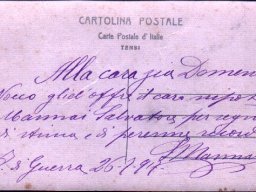 CARTOLINA POSTALE
Carte Postale d'Italie
TENSI
Alla cara zia Domen
offre il caro nipote
Mannai Salvatore per
di Anna e di perenne ricord
Guerra 26
Mannai